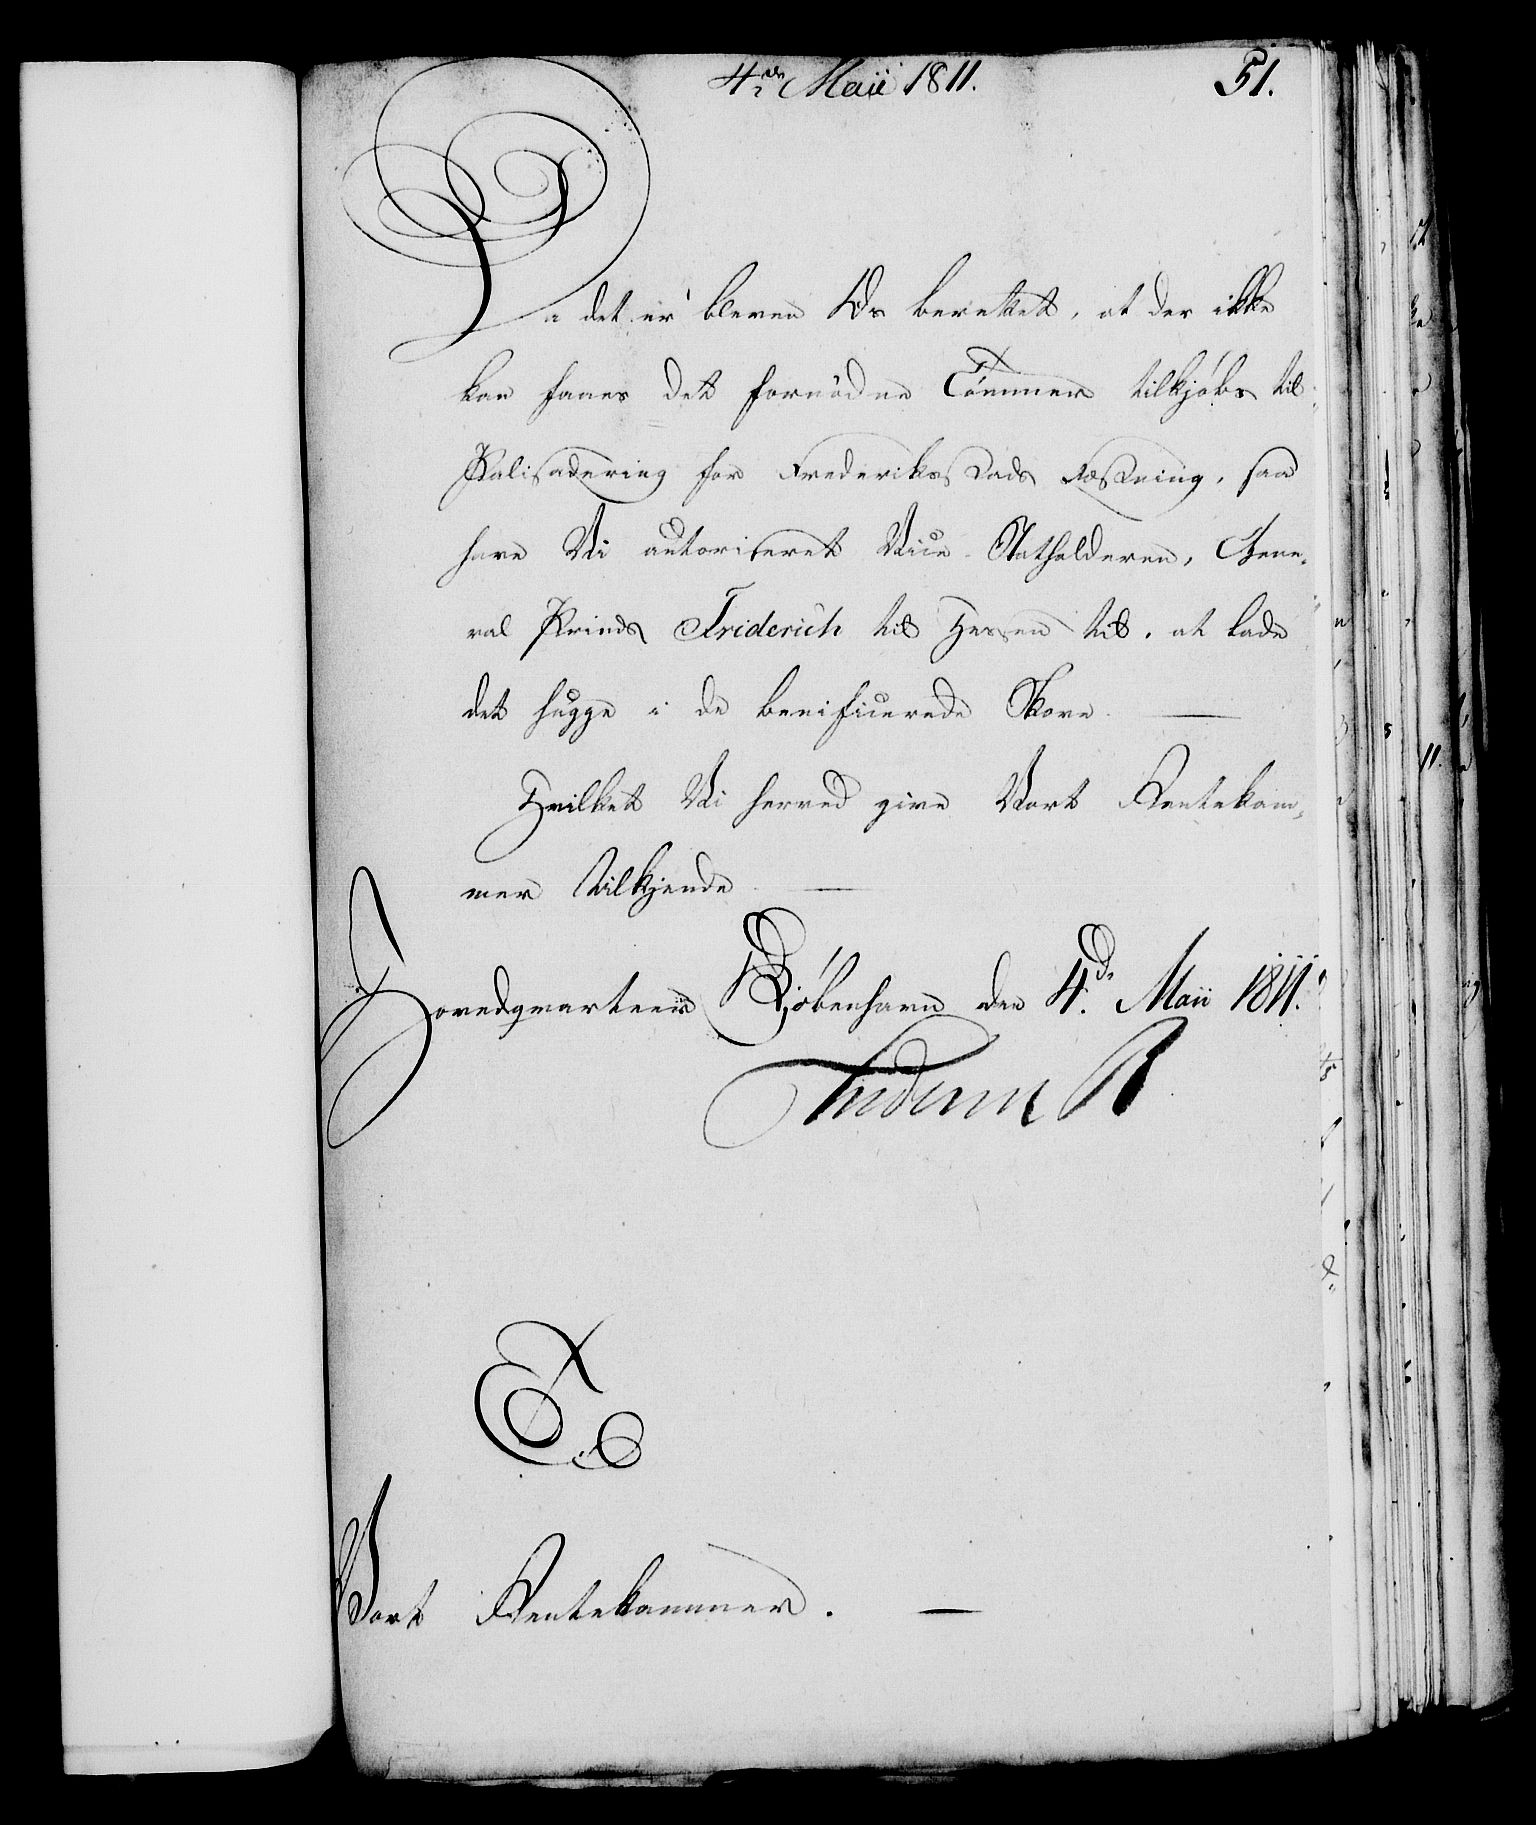 4de Maii 1811.
51.
Da det er bleven Os berettet, at der ikke
kan faaes det fornödne Tömmer tilkjöbs til
Palisadering for Frederiksstads Fæstning, saa
have Vi autoriseret Vice-Statholderen, Gene-
ral Prinds Friderich til Hessen til, at lade
det hugge i de benificerede Skove.
Hvilket Vi herved give Vort Rentekam-
mer tilkjende
Hovedqvarteer Kjöbenhavn den 4d. Maii 1811.
Frederik R
Vort Rentekammer.